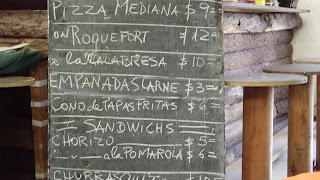 PIZZA MEDIANA $9=
con ROQUEFORT $12=
a la CALABRESA $10=
EMPANADAS CARNE $3=
CONO de PAPAS FRITAS $6=
SANDWICHS
CHORIZO $5=
" " a la POMAROLA $6=